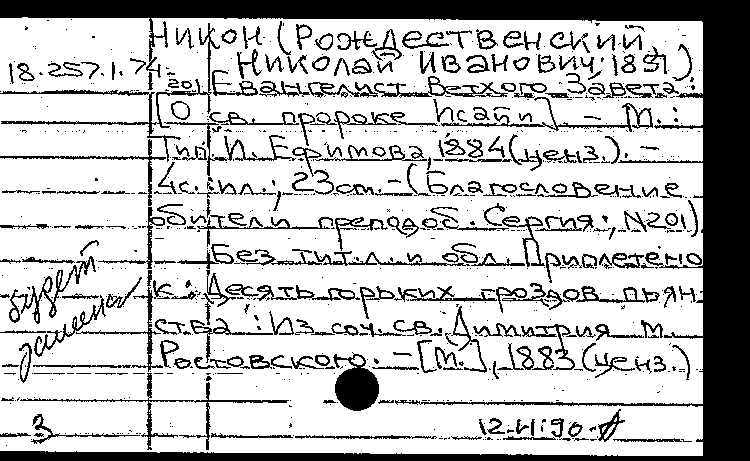 Никон (Рождественский,
Николай Иванович; 1851)
18.257.1.74-
201
Евангелист Ветхого Завета:
[О св. пророке Исайи]. - М.:
Тип. И. Ефимова, 1884 (ценз.). -
4с.: ил.; 23 см. - (Благословение
обители преподоб. Сергия; N201)
Без тит.л. и обл. Приплетено
к: Десять горьких гроздов пьян-
ства: Из соч. св. Димитрия м.
Ростовского. - [М.], 1883 (ценз.)
будет
замена
3